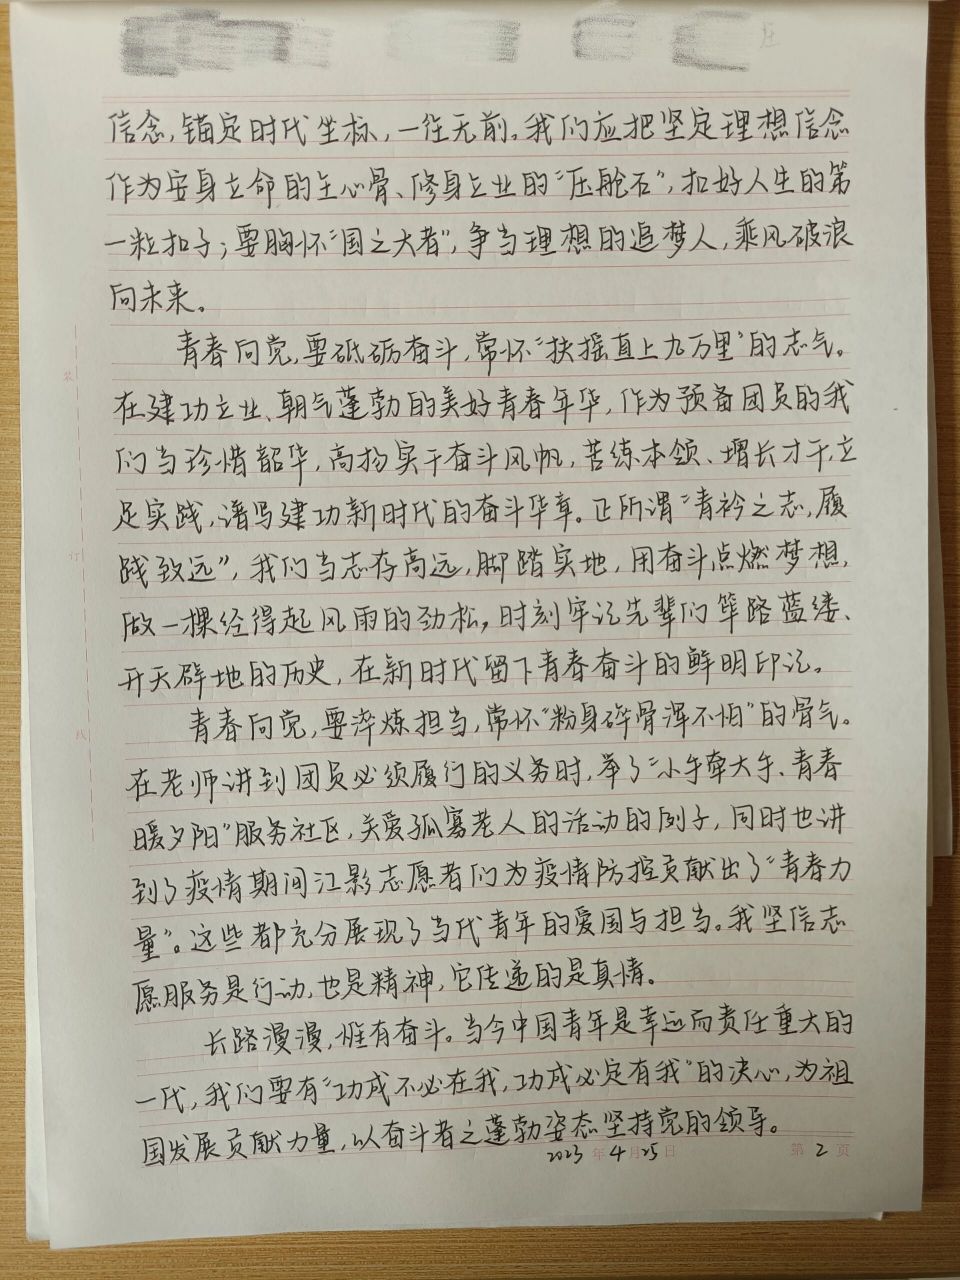 信念,锚定时代坐标,一往无前。我们应把坚定理想信念
作为安身立命的主心骨、修身立业的“压舱石”,扣好人生的第
一粒扣子;要胸怀“国之大者”,争当理想的追梦人,乘风破浪
向未来。
青春向党,要砥砺奋斗,常怀“扶摇直上九万里”的志气。
在建功立业、朝气蓬勃的美好青春年华,作为预备团员的我
们当珍惜韶华,高扬实干奋斗风帆,苦练本领、增长才干,立
足实践,谱写建功新时代的奋斗华章。正所谓“青衿之志,履
践致远”,我们当志存高远,脚踏实地,用奋斗点燃梦想,
做一棵经得起风雨的劲松,时刻牢记先辈们筚路蓝缕、
开天辟地的历史,在新时代留下青春奋斗的鲜明印记。
青春向党,要淬炼担当,常怀“粉身碎骨浑不怕”的骨气。
在老师讲到团员必须履行的义务时,举了“小手牵大手、青春
暖夕阳”服务社区,关爱孤寡老人的活动的例子,同时也讲
到了疫情期间江影志愿者们为疫情防控贡献出了“青春力
量”。这些都充分展现了当代青年的爱国与担当。我坚信志
愿服务是行动,也是精神,它传递的是真情。
长路漫漫,惟有奋斗。当今中国青年是幸运而责任重大的
一代,我们要有“功成不必在我,功成必定有我”的决心,为祖
国发展贡献力量,以奋斗者之蓬勃姿态坚持党的领导。
2023 年 4 月 25 日 第 2 页
装
订
线